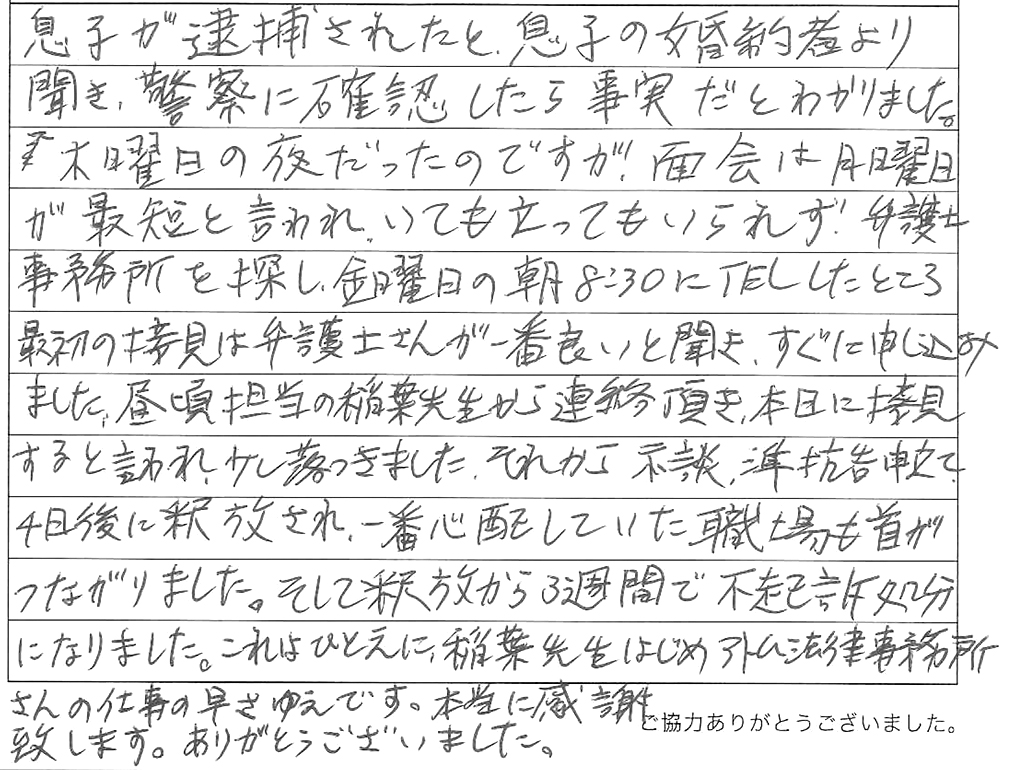 息子が逮捕されたと、息子の婚約者より
聞き、警察に確認したら事実だとわかりました。
木曜日の夜だったのですが、面会は月曜日
が最短と言われ、いても立ってもいられず、弁護士
事務所を探し、金曜日の朝8:30にTELしたところ
最初の接見は弁護士さんが一番良いと聞き、すぐに申し込み
ました。昼頃担当の稲葉先生から連絡頂き、本日に接見
すると言われ、少し落つきました。それから示談、準抗告申立て、
4日後に釈放され、一番心配していた職場も首が
つながりました。そして釈放から3週間で不起訴処分
になりました。これはひとえに、稲葉先生はじめアトム法律事務所
さんの仕事の早さゆえです。本当に感謝
致します。ありがとうございました。
ご協力ありがとうございました。